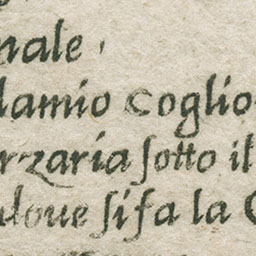 nale,
lamio coglio
rzaria ſotto il
doue ſi fa la C